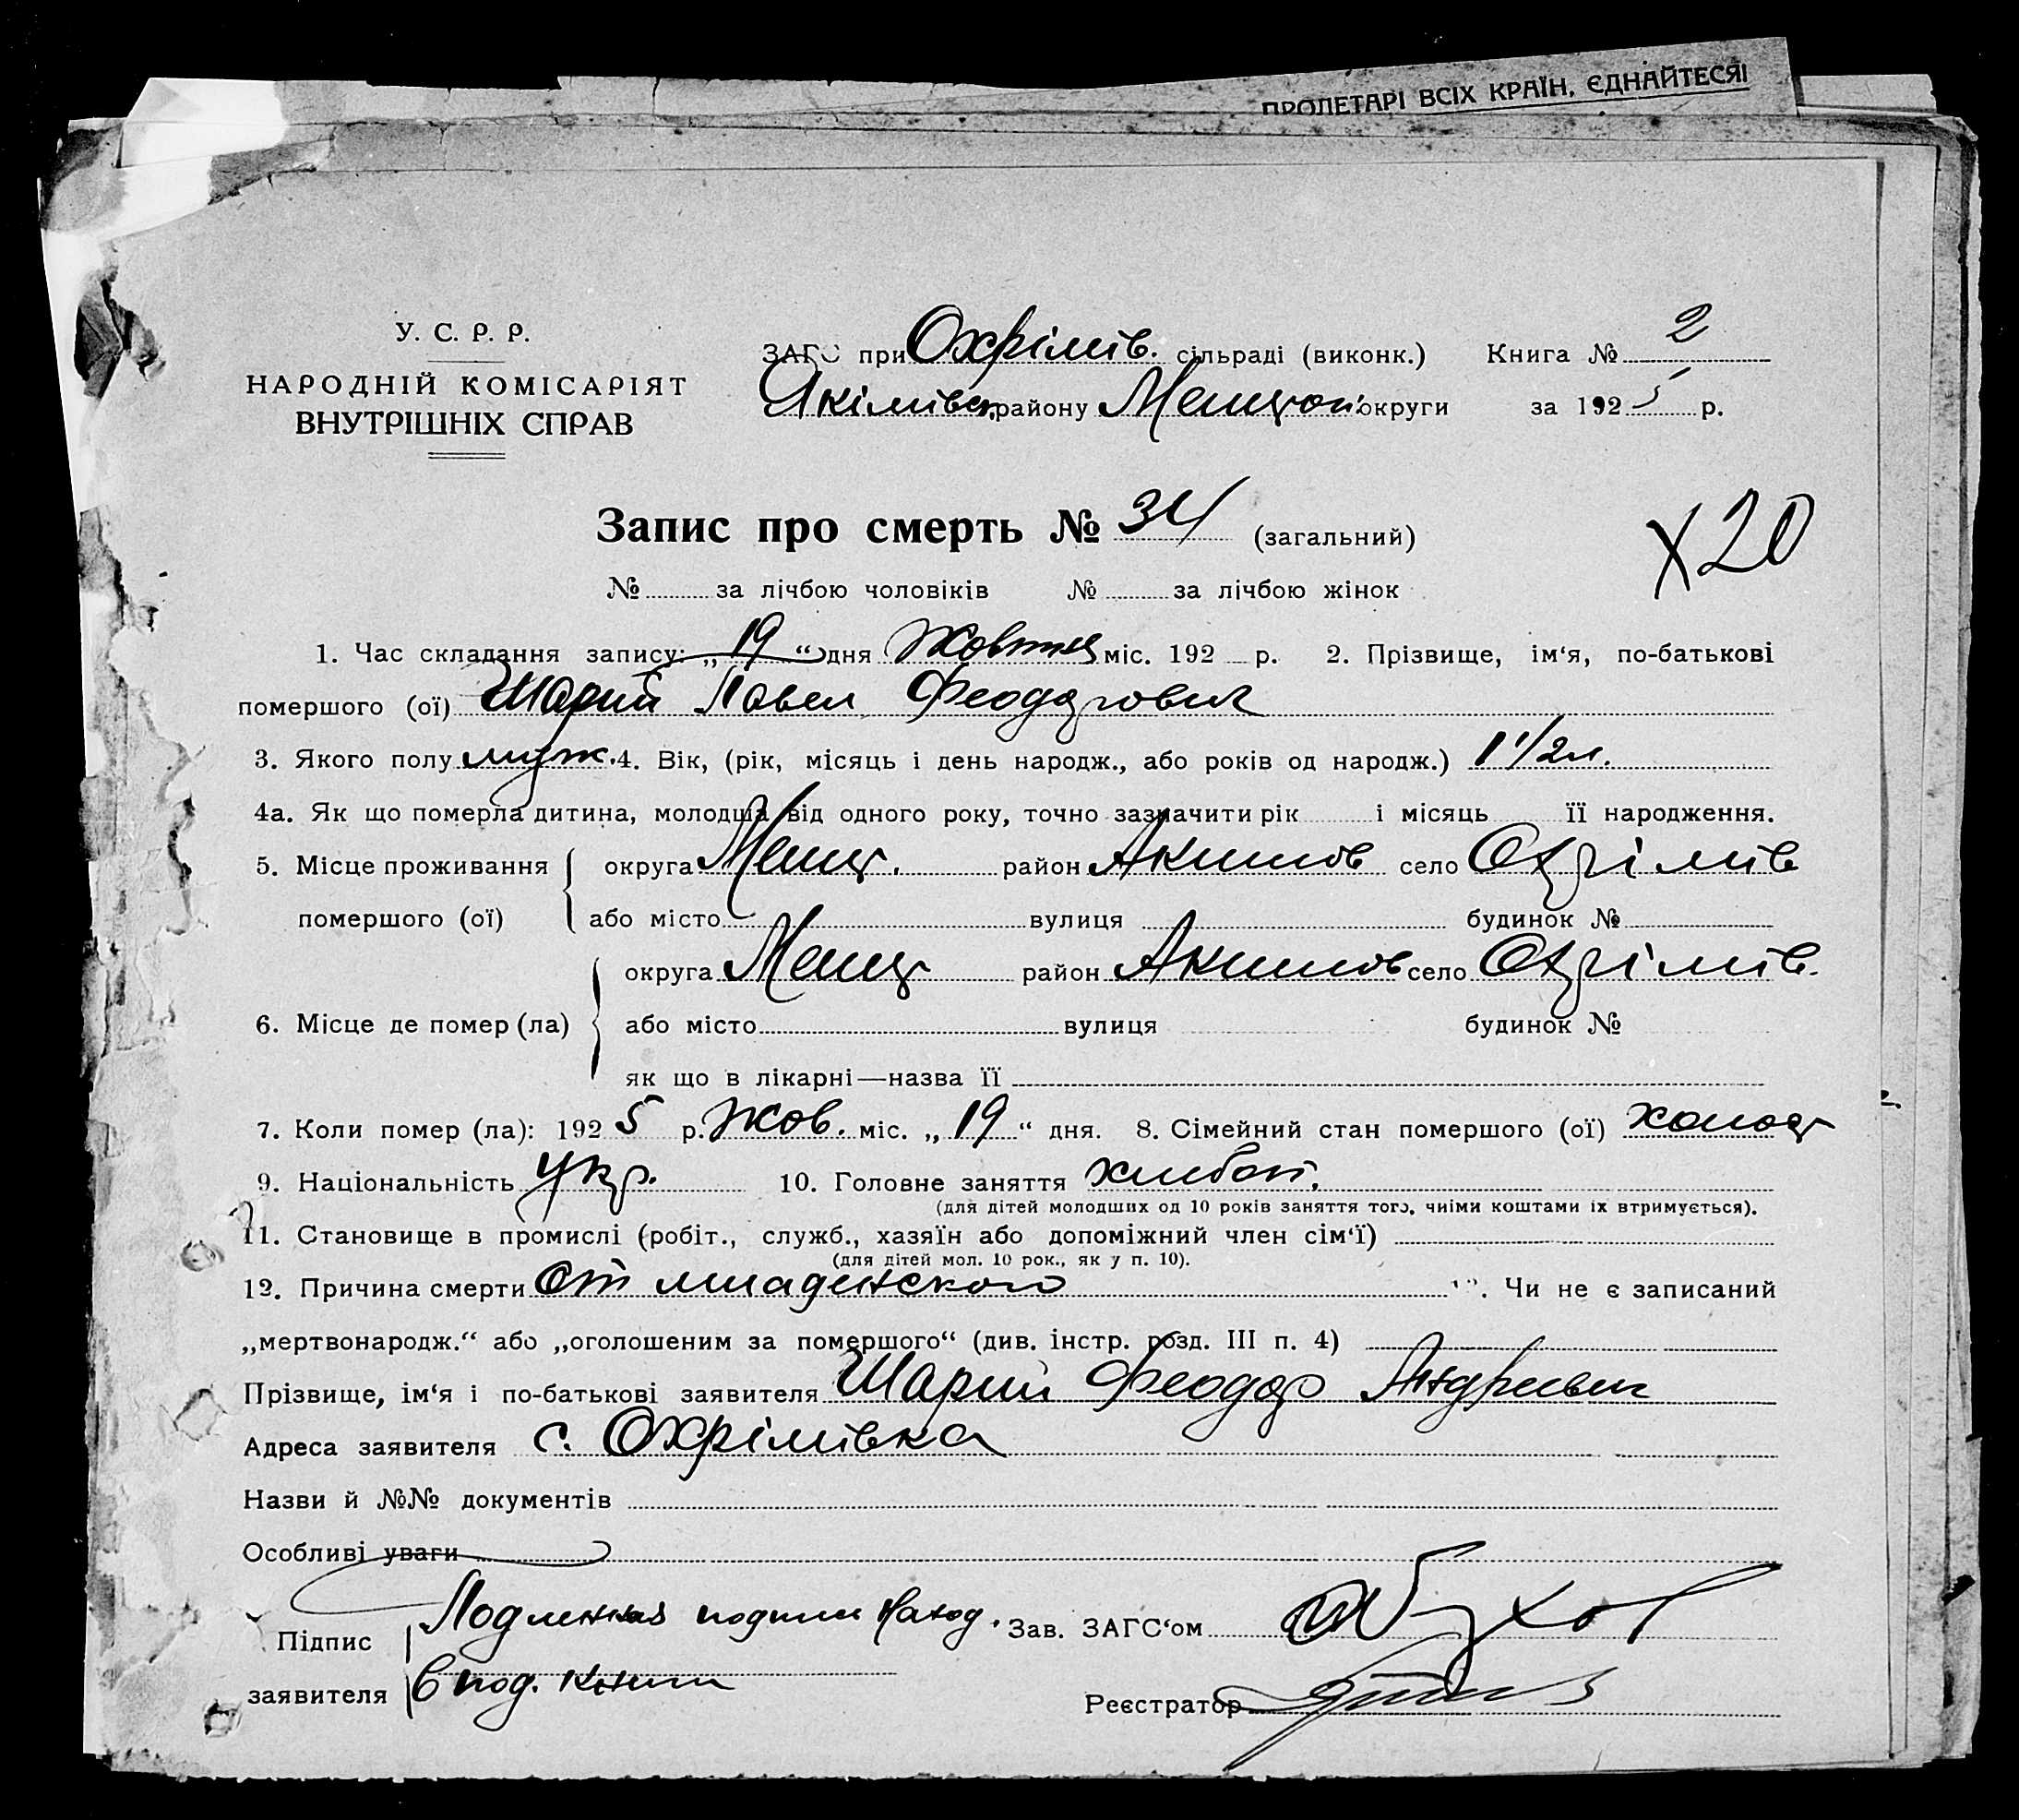 ПРОЛЕТАРІ ВСІХ КРАЇН, ЄДНАЙТЕСЯ!
У. С. Р. Р.
НАРОДНІЙ КОМІСАРІЯТ
ВНУТРІШНІХ СПРАВ
ЗАГС при Охрімів. сільраді (виконк.) Книга № 2
Якімівск. району Меліт округи за 1925 р.
Запис про смерть № 34 (загальний)
Х20
№ за лічбою чоловіків № за лічбою жінок
1. Час складання запису: „19“ дня Жовтня міс. 192 р. 2. Прізвище, ім‘я, по-батькові
помершого (ої) Шарий Павел Феодорович
3. Якого полу муж. 4. Вік, (рік, місяць і день народж., або років од народж.) 1 1/2 л.
4а. Як що померла дитина, молодша від одного року, точно зазначити рік і місяць її народження.
5. Місце проживання округа Мелит. район Акимов село Охрімів
помершого (ої) або місто вулиця будинок №
округа Мелит район Акимов село Охрімів.
6. Місце де помер (ла) або місто вулиця будинок №
як що в лікарні—назва її
7. Коли помер (ла): 1925 р. Жов. міс. „19“ дня. 8. Сімейний стан помершого (ої) холост
9. Національність Укр. 10. Головне заняття хлебоп.
(для дітей молодших од 10 років заняття того, чиїми коштами їх втримується).
11. Становище в промислі (робіт., служб., хазяїн або допоміжний член сім‘ї)
(для дітей мол. 10 рок., як у п. 10).
12. Причина смерти От младенского 13. Чи не є записаний
„мертвонародж.“ або „оголошеним за помершого“ (див. інстр. розд. III п. 4)
Прізвище, ім‘я і по-батькові заявителя Шарий Феодор Андреевич
Адреса заявителя с. Охрімівка
Назви й №№ документів
Особливі уваги
Підпис Подленная подпись наход. Зав. ЗАГС‘ом
заявителя в под. книги Реєстратор